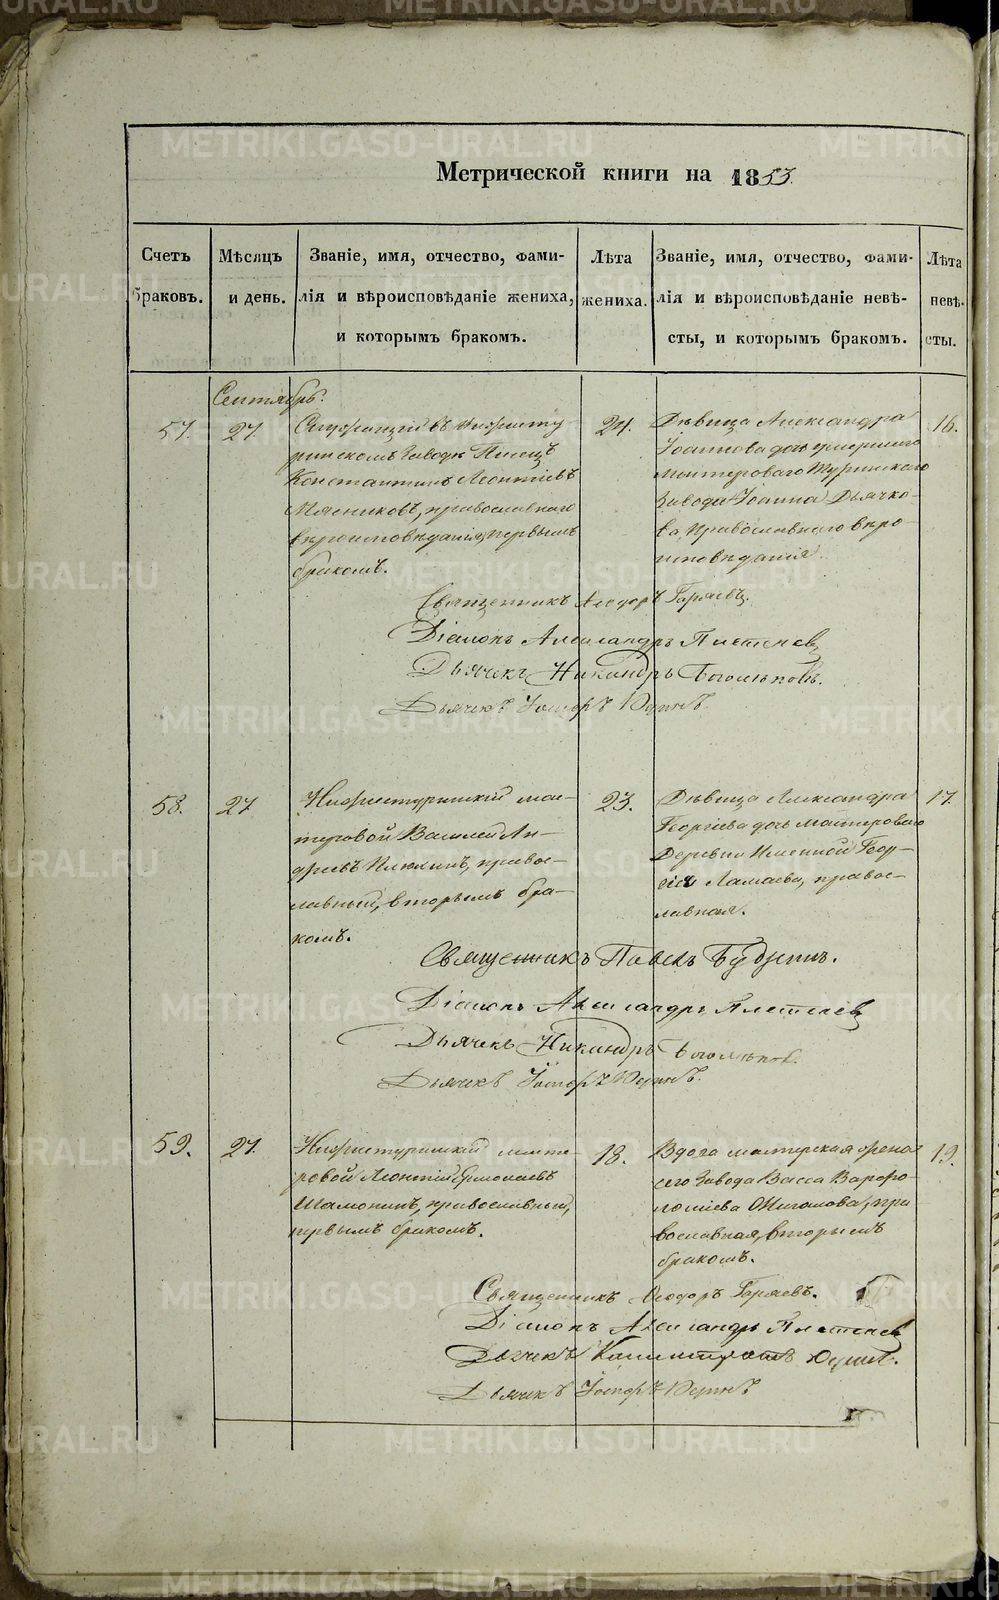 Метрической книги на 1853.
Счетъ браковъ.
Мѣсяцъ и день.
Званіе, имя, отчество, фами-
лія и вѣроисповѣданіе жениха,
и которымъ бракомъ.
Лѣта жениха.
Званіе, имя, отчество, фами-
лія и вѣроисповѣданіе невѣ-
сты, и которымъ бракомъ.
Лѣта невѣ-
сты.
Сентябрь.
57.
27.
Служащій въ Нижнету
ринскомъ заводѣ Писецъ
Константинъ Леонтіевъ
Мясниковъ, православнаго
вѣроисповѣданія, первымъ
бракомъ.
24.
Дѣвица Александра
Іоаннова дочь умершаго
мастероваго Туринскаго
завода Іоанна Дьячко-
ва, Православнаго вѣро-
исповѣданія.
16.
Священникъ Ѳеодоръ Горяевъ.
Діаконъ Александръ Плетневъ
Дьячекъ Никандръ Боголѣповъ.
Дьячекъ
58.
27
Нижнетуринскій мас-
теровой Василей Ан-
дреевъ православ-
лавный, вторымъ бра-
комъ.
23.
Дѣвица Александра
Георгіева дочь мастероваго
Деревни Именной Геор-
гія Ламаева, правос-
лавная.
17.
Священникъ Павелъ Будринъ.
Діаконъ Александръ Плетневъ
Дьячекъ Никандръ Боголѣповъ.
Дьячекъ
59.
27.
Нижнетуринскій масте-
ровой Леонтій Ермолаевъ
Шамонинъ, православный,
первымъ бракомъ.
18.
Вдова мастерская
сего завода Васса Варфо-
ломіева Ожиганова, пра
вославная, вторымъ
бракомъ.
19.
Священникъ Ѳеодоръ Горяевъ.
Діаконъ Александръ Плетневъ
Дьячекъ Калистратъ
Дьячекъ
METRIKI.GASO-URAL.RU